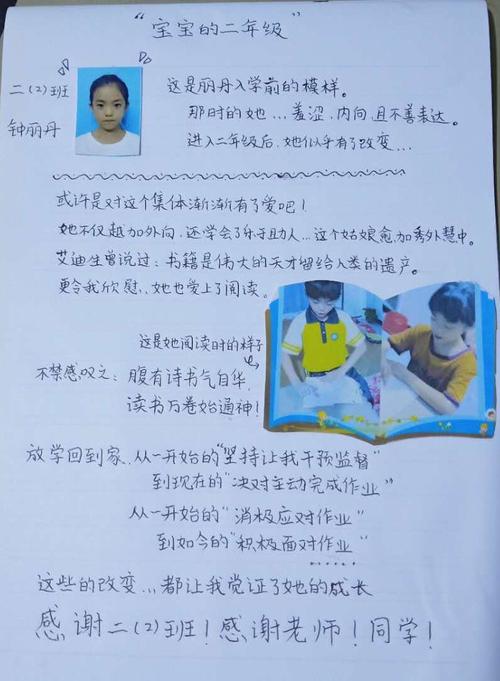 “宝宝的二年级”
二(2)班
钟丽丹
这是丽丹入学前的模样。
那时的她…羞涩,内向且不善表达。
进入二年级后,她似乎有了改变…
或许是对这个集体渐渐有了爱吧!
她不仅越加外向,还学会了乐于助人…这个姑娘愈加秀外慧中。
艾迪生曾说过:书籍是伟大的天才留给人类的遗产。
更令我欣慰、她也爱上了阅读。
这是她阅读时的样子
不禁感叹之:腹有诗书气自华,
读书万卷始通神!
放学回到家、从一开始的“坚持让我干预监督”
到现在的“决对主动完成作业”
从一开始的“消极应对作业”
到如今的“积极面对作业”
这些的改变…都让我觉证了她的成长
感谢二(2)班!感谢老师!同学!